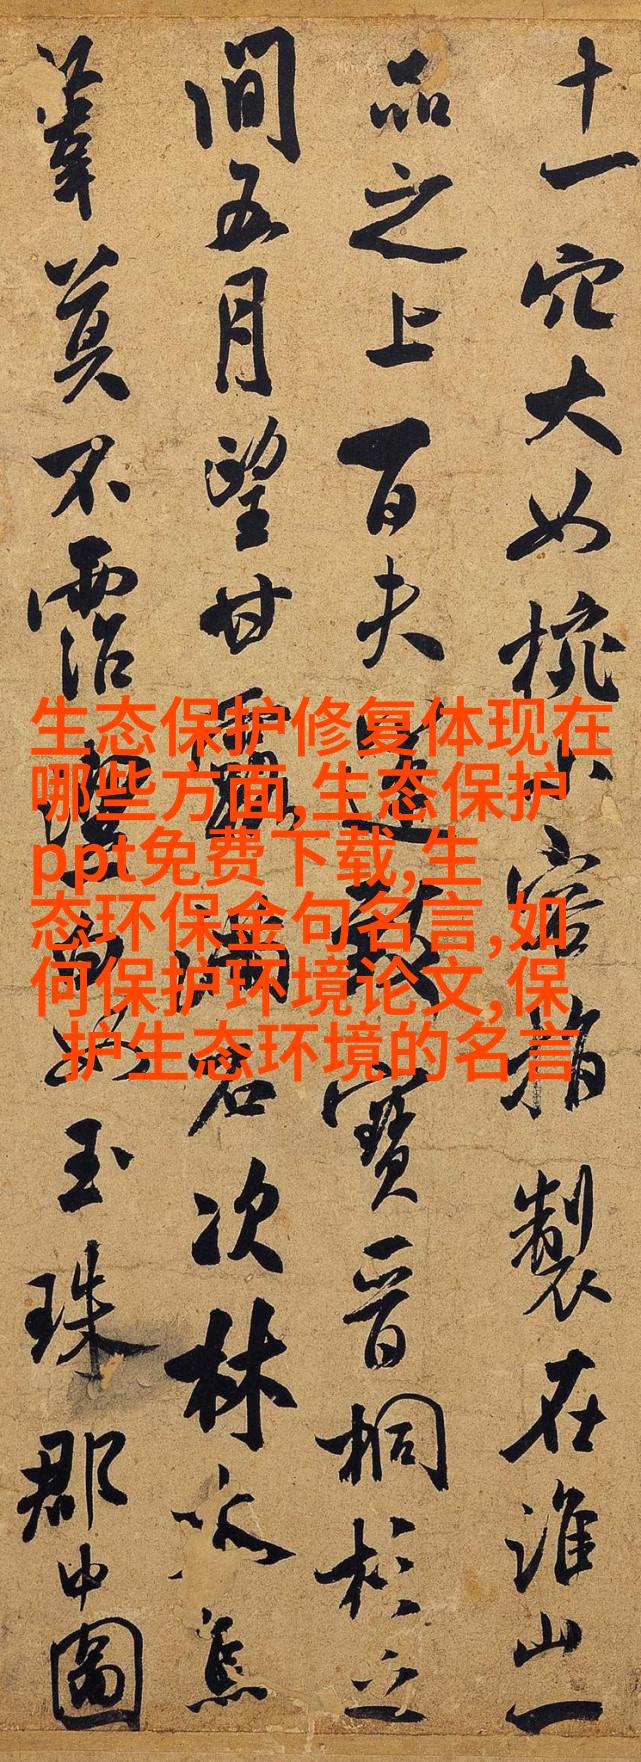 十一穴大如椀小容指製在淮山一
品之上百夫運致寶晉桐杉之
間五月望甘露滿石次林木焦
葦莫不霑潔白如玉珠郡中圖
生态保护修复体现在
哪些方面,生态保护
ppt免费下载,生
态环保金句名言,如
何保护环境论文,保
护生态环境的名言